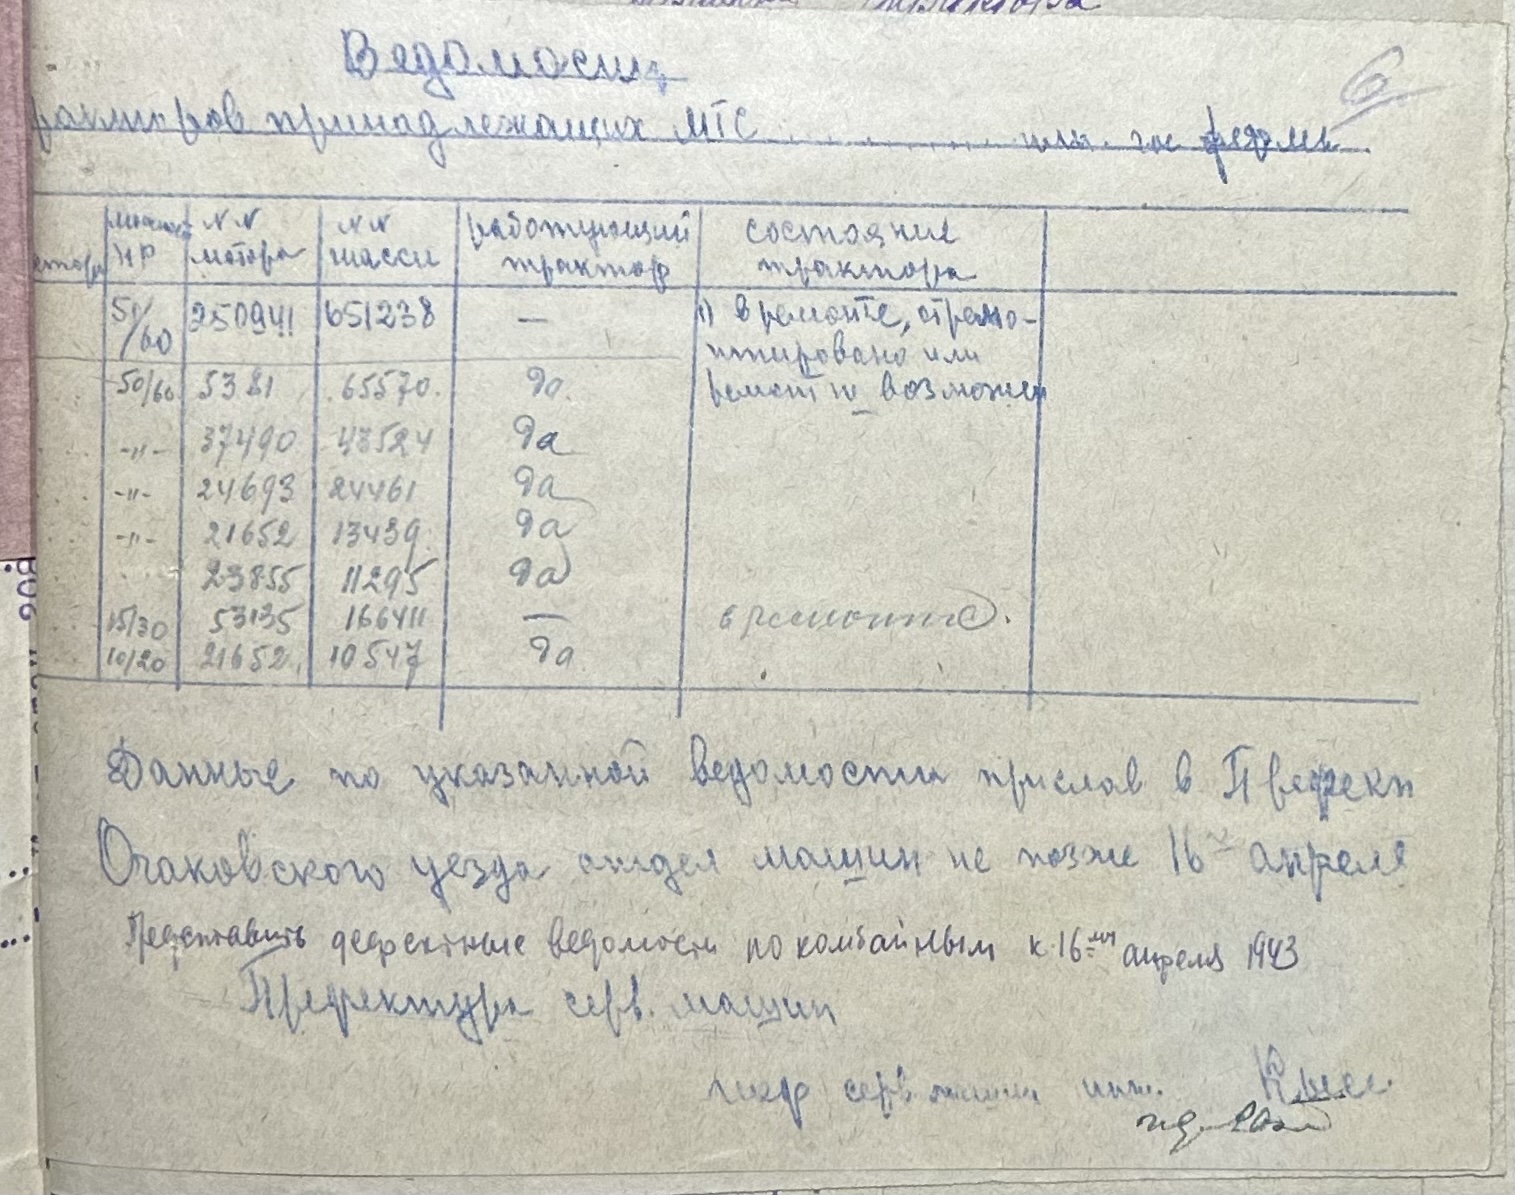 Ведомость
ракторов принадлежащих МТС ............ или гос фермы
мощност НР
N N мотора
N N шасси
работующий трактор
состояние трактора
50/60 250941 651238 — 1) в ремонте, отремо-
нтировано или
50/60 5381 65570 да ремонт не возможен
-"- 37490 43524 да
-"- 24693 24461 да
-"- 21652 13439 да
23855 11295 да
15/30 53135 166411 — в ремонте.
10/20 21652 10547 да
Данные по указанной ведомости прислав в Префек
Очаковского уезда отдел машин не позже 16го апреля
Представить дефектные ведомости по комбайным к 16му апреля 1943
Префектура серв. машин
шеф серв машин инж.
6